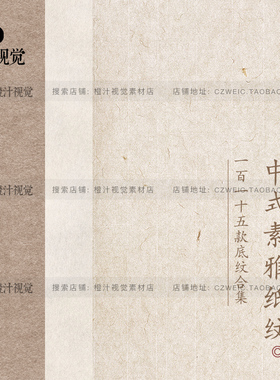 视觉
搜索店铺:橙汁视觉素材店 店铺地址:CZWEIC.TAOBAO
汁视觉
搜索店铺:橙汁视觉素材店 店铺地址:CZWEIC.TAOBAO
汁视觉
搜索店铺:橙汁视觉素材店 店铺地址:CZWEIC.TAOBAO
中式素雅纸纹
一百一十五款底纹合集